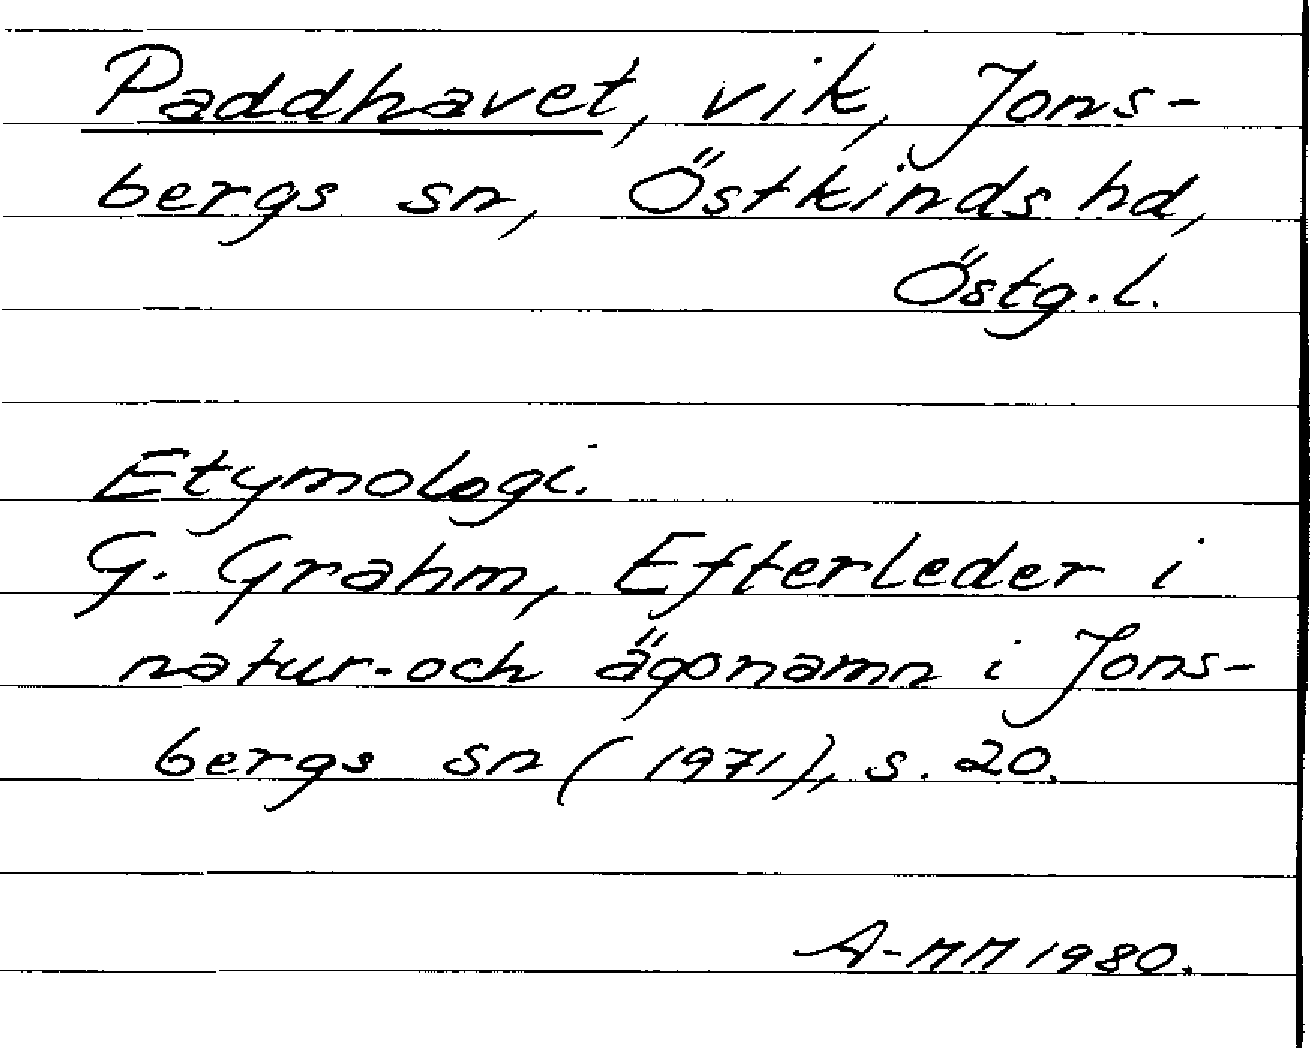 Paddhavet, vik, Jons-
bergs sn, Östkinds hd,
Östg.l.
Etymologi.
G. Grahm, Efterleder i
natur- och ägonamn i Jons-
bergs sn (1971), s. 20.
A-MM 1980.